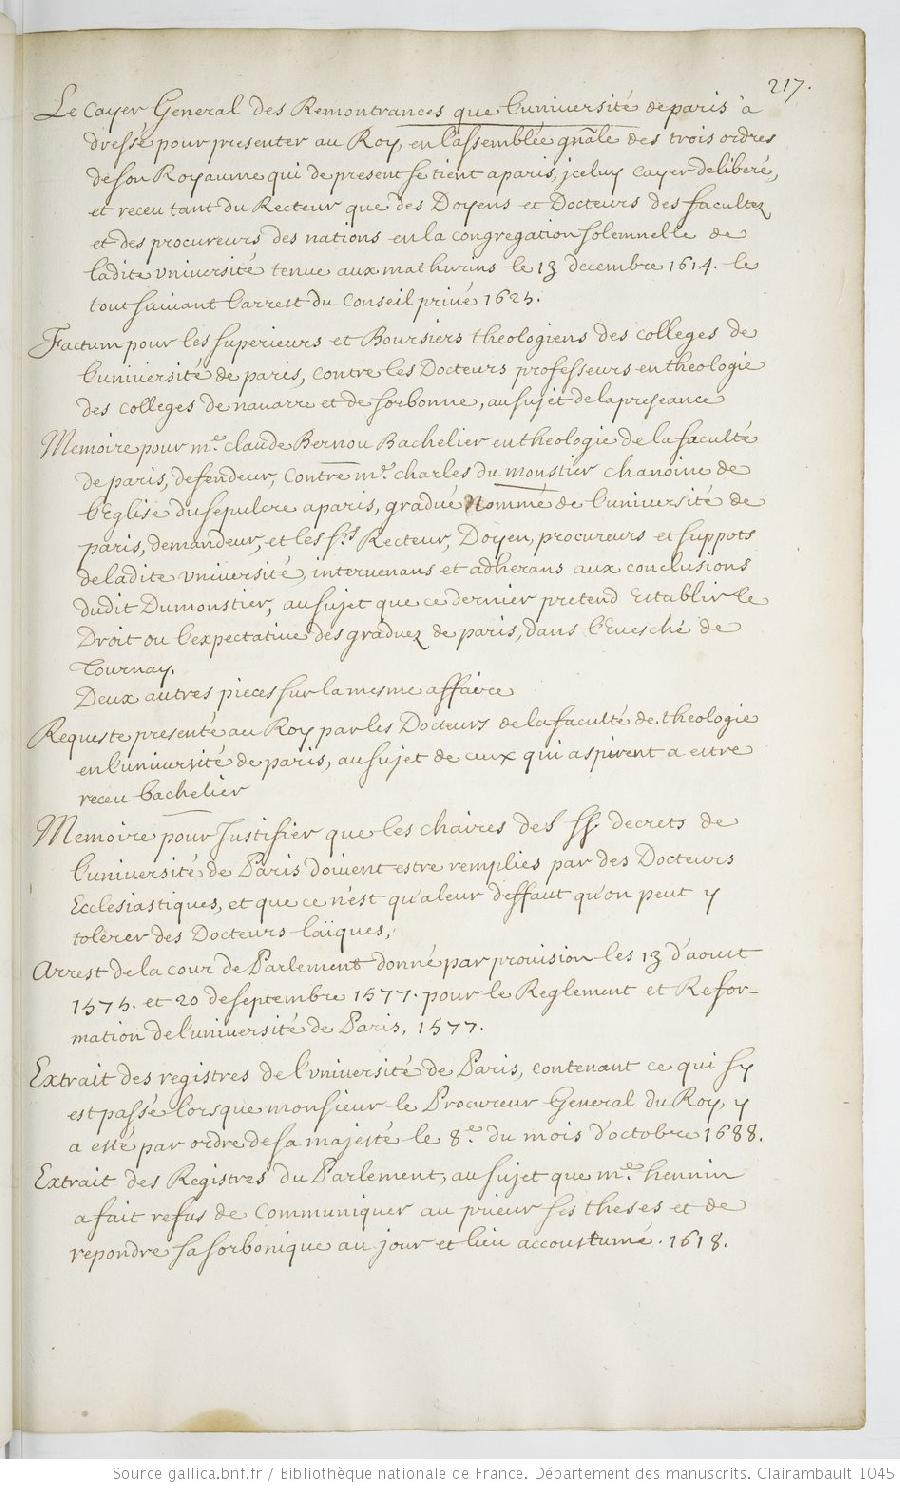 217.
Le Cayer General des Remontrances que l'université de paris a
dressé pour presenter au Roy, en l'assemblée gñale des trois ordres
de son Royaume qui de present se tient a paris, jceluy cayer deliberé,
et receu tant du Recteur que des Doyens et Docteurs des facultez
et des procureurs des nations en la congregation solemnelle de
ladite université tenue aux mathurins le 13 decembre 1614. le
tout suivant l'arrest du Conseil privé 1625.
Factum pour les superieurs et Boursiers theologiens des colleges de
l'université de paris, contre les Docteurs professeurs en theologie
des colleges de navarre et de sorbonne, au sujet de la preseance
Memoire pour me. claude Bernou Bachelier en theologie de la faculté
de paris, defendeur, contre me. charles du moustier chanoine de
l'Eglise du sepulcre a paris, gradué Nommé de l'université de
paris, demandeur, et les srs Recteur, Doyen, procureurs et suppots
de ladite université, intervenans et adherans aux conclusions
dudit Dumonstier, au sujet que ce dernier pretend Establir le
Droit ou l'expectative des graduez de paris, dans l'Evesché de
Tournay.
Deux autres pieces sur la mesme affaire
Requeste presenté au Roy par les Docteurs de la faculté de theologie
en l'université de paris, au sujet de ceux qui aspirent a estre
receu bachelier
Memoire pour Justifier que les chaires des SS. decrets de
l'université de Paris doivent estre remplies par des Docteurs
Ecclesiastiques, et que ce n'est qu'a leur deffaut qu'on peut y
tolerer des Docteurs laïques,
Arrest de la cour de Parlement donné par provision les 13 d'aoust
1575. et 20 de septembre 1577. pour le Reglement et Refor-
mation de l'université de Paris, 1577.
Extrait des registres de l'université de Paris, contenant ce qui s'y
est passé lorsque monsieur le Procureur General du Roy, y
a esté par ordre de sa majesté le 8e. du mois d'octobre 1688.
Extrait des Registres du Parlement, au sujet que me. hennin
a fait refus de communiquer au prieur ses theses et de
repondre sa sorbonique au jour et lieu accoustumé. 1618.
Source gallica.bnf.fr / Bibliothèque nationale de France. Département des manuscrits. Clairambault 1045